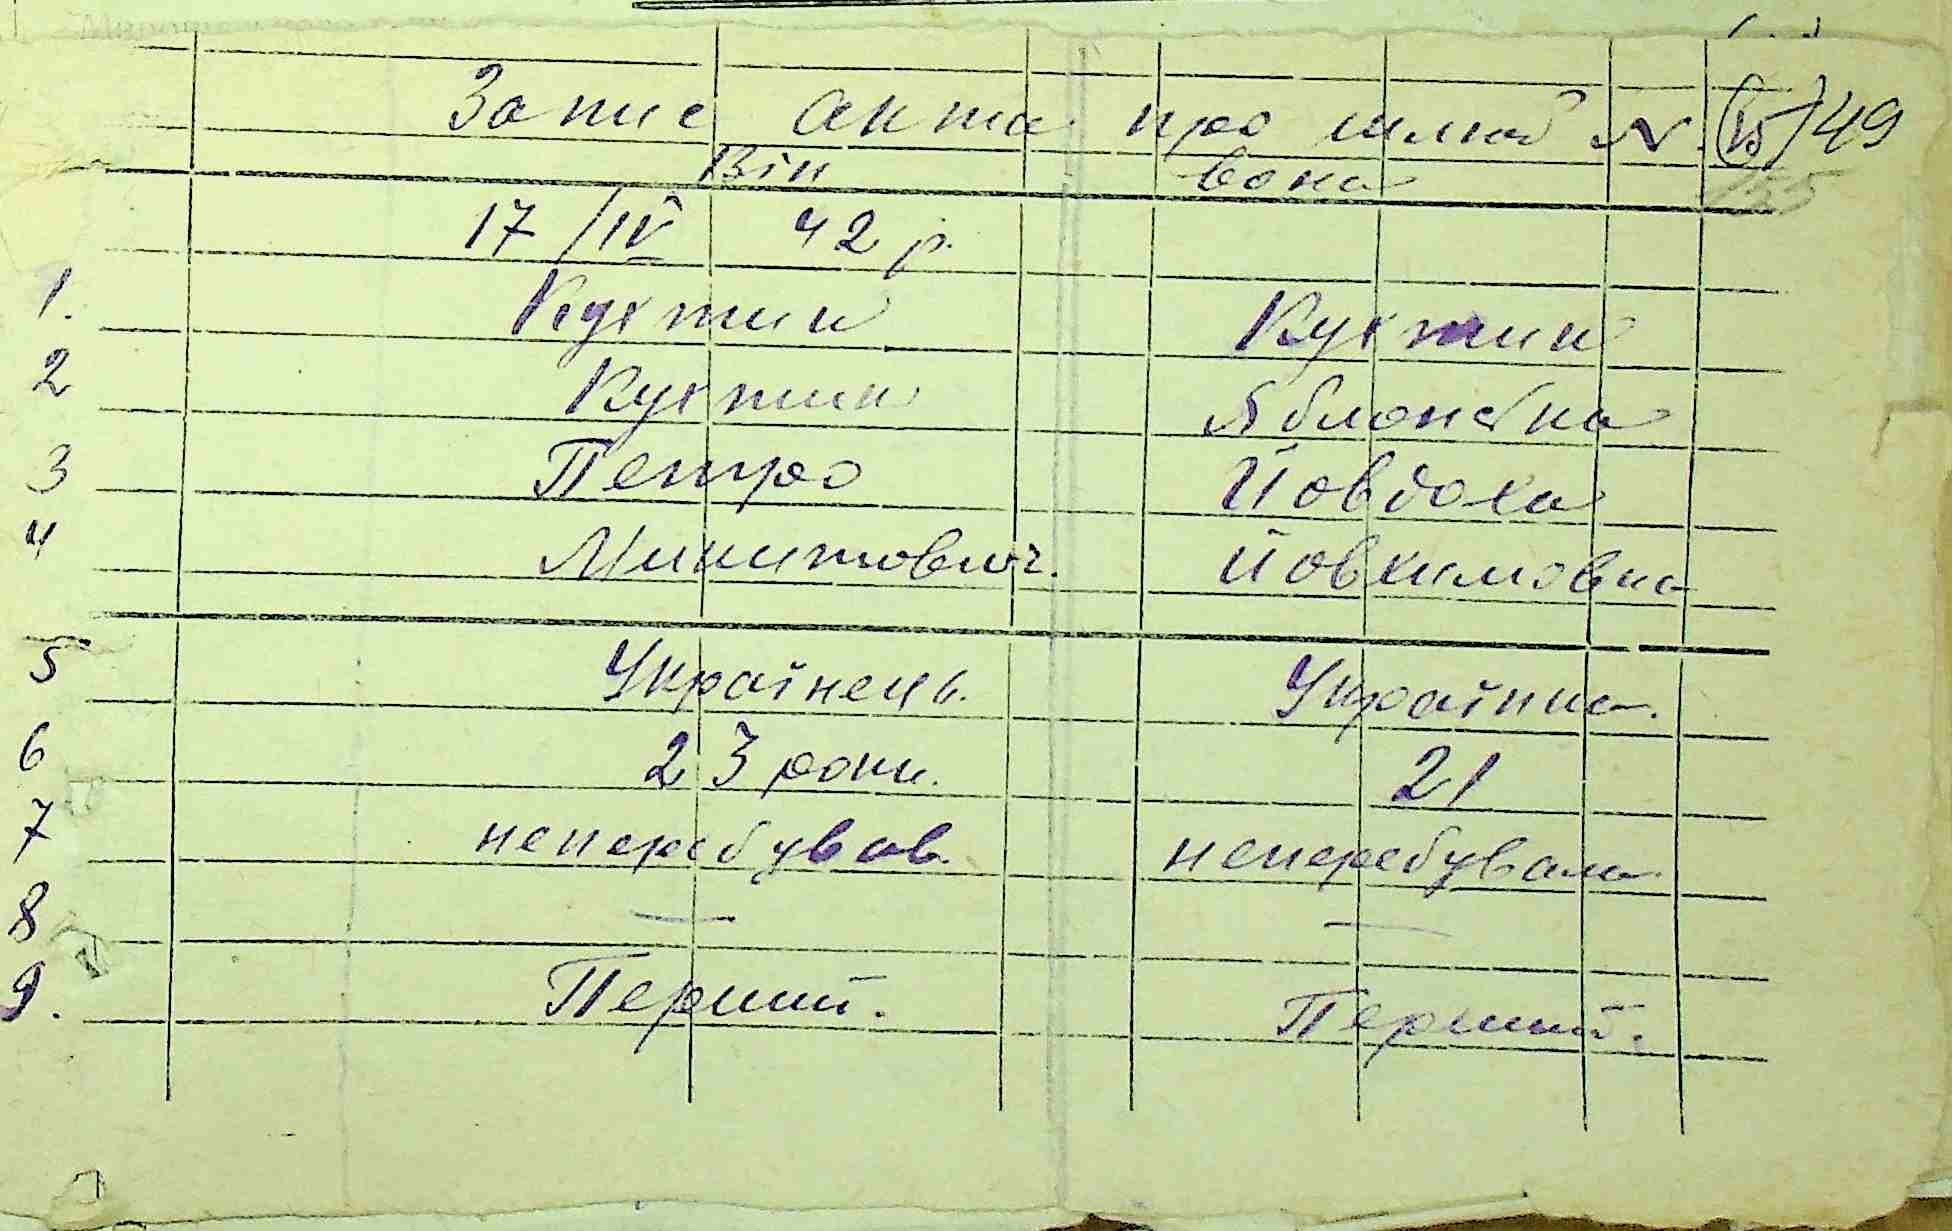 Запис акта про шлюб N. (15) 49
Він вона
155
17/IV 42 р.
1. Кухтин Кухтин
2 Кухтин Яблонська
3 Петро Йовдоха
4 Микитович. Йовхимовна
5 Українець. Українка.
6 23 роки. 21
7 неперебував. неперебувала.
8 — —
9. Перший. Перший.